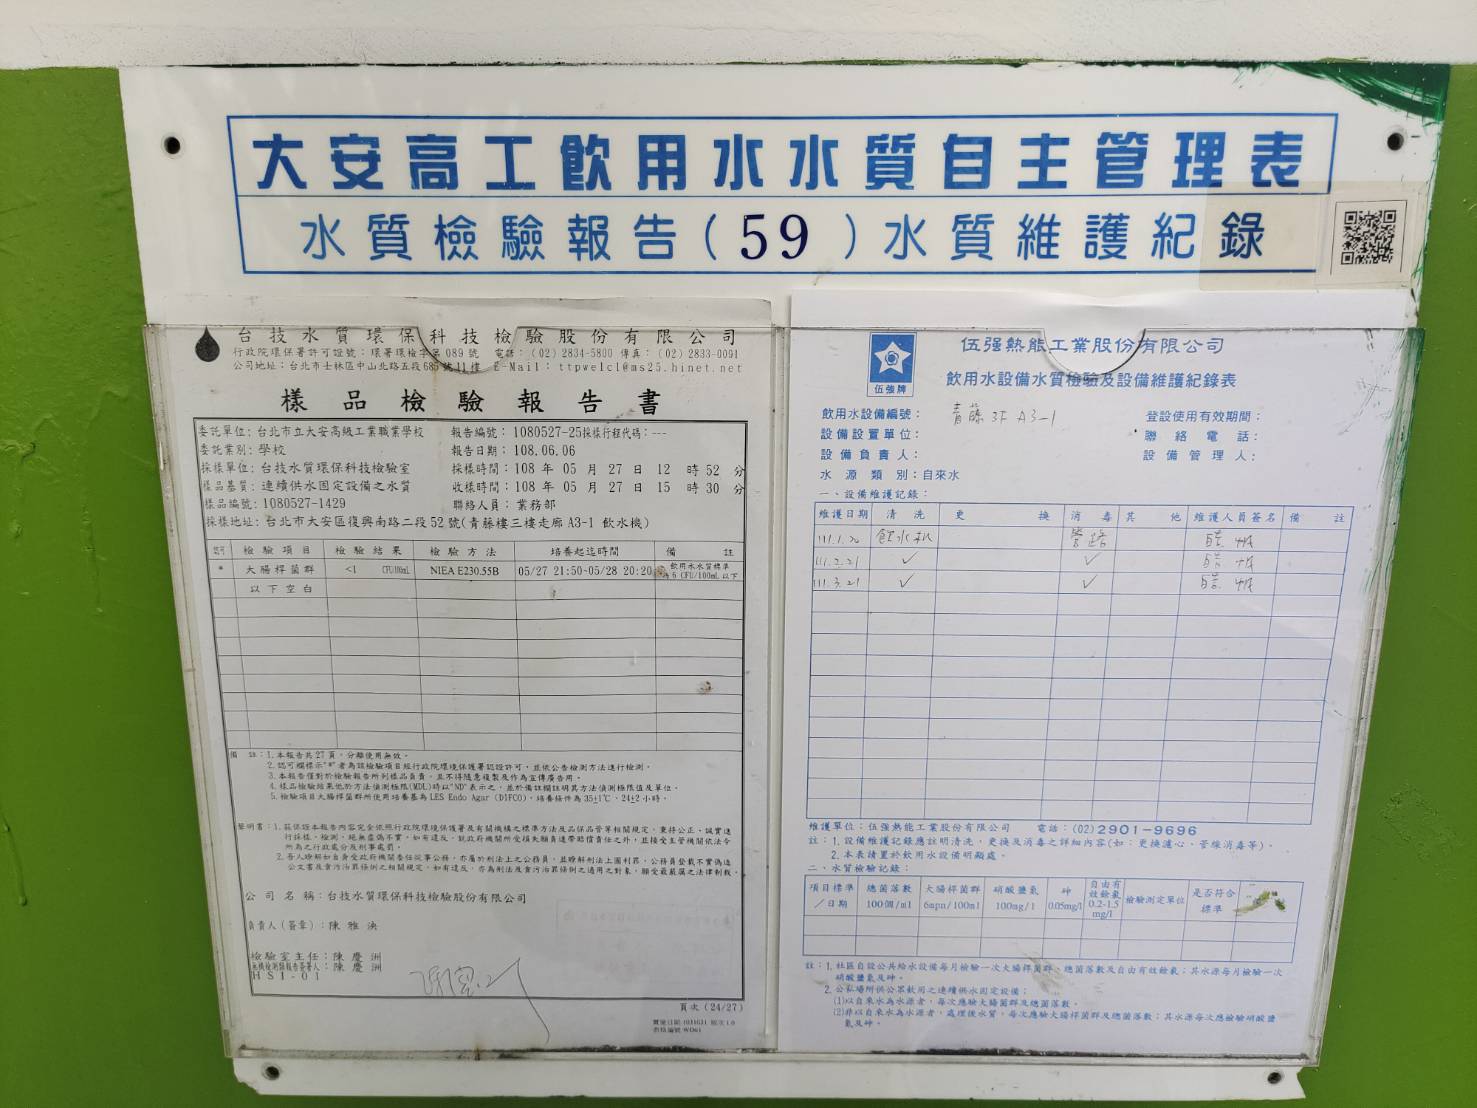 大安高工飲用水水質自主管理表
水質檢驗報告(59)水質維護紀錄
台技水質環保科技檢驗股份有限公司
行政院環保署許可證號：環署環檢字第089號 電話：(02) 2834-5800 傳真：(02) 2833-0091
公司地址：台北市士林區中山北路五段685號11樓 E-Mail：ttpwelcl@ms25.hinet.net
樣品檢驗報告書
委託單位：台北市立大安高級工業職業學校 報告編號：1080527-25採樣行程代碼：---
委託業別：學校 報告日期：108.06.06
採樣單位：台技水質環保科技檢驗室 採樣時間：108 年 05 月 27 日 12 時 52 分
樣品基質：連續供水固定設備之水質 收樣時間：108 年 05 月 27 日 15 時 30 分
樣品編號：1080527-1429 聯絡人員：業務部
採樣地址：台北市大安區復興南路二段52號(青藤樓三樓走廊 A3-1 飲水機)
認可 檢驗項目 檢驗結果 檢驗方法 培養起迄時間 備註
* 大腸桿菌群 <1 CFU/100mL NIEA E230.55B 05/27 21:50~05/28 20:20 飲用水水質標準為6 CFU/100mL以下
以下空白
備註：1.本報告共27頁，分離使用無效。
2.認可欄標示"*"者為該檢驗項目經行政院環境保護署認證許可，並依公告檢測方法進行檢測。
3.本報告僅對於檢驗報告所列樣品負責，且不得隨意複製及作為宣傳廣告用。
4.樣品檢驗結果低於方法偵測極限(MDL)時以"ND"表示之，並於備註欄註明其方法偵測極限值及單位。
5.檢驗項目大腸桿菌群所使用培養基為LES Endo Agar (DIFCO)，培養條件為35±1℃，24±2小時。
聲明書：1.茲保證本報告內容完全依照行政院環境保護署及有關機構之標準方法及品保品管等相關規定，秉持公正、誠實進
行採樣、檢測，絕無虛偽不實，如有違反，就政府機關所受損失願負連帶賠償責任之外，且接受主管機關依法令
所為之行政處分及刑事處罰。
2.吾人瞭解如自身受政府機關委任從事公務，亦屬於刑法上之公務員，並瞭解刑法上圖利罪、公務員登載不實偽造
公文書及貪污治罪條例之相關規定，如有違反，亦為刑法及貪污治罪條例之適用之對象，願受最嚴厲之法律制裁。
公司名稱：台技水質環保科技檢驗股份有限公司
負責人(簽章)：陳雅泱
檢驗室主任：陳慶洲
無機檢測類報告簽署人：陳慶洲
HSI-01
頁次(24/27)
伍強牌
伍强熱能工業股份有限公司
飲用水設備水質檢驗及設備維護紀錄表
飲用水設備編號：青藤3F A3-1 登設使用有效期間：
設備設置單位： 聯絡電話：
設備負責人： 設備管理人：
水源類別：自來水
一、設備維護記錄：
維護日期 清洗 更換 消毒 其他 維護人員簽名 備註
111.1.20 飲水機 管路
111.2.21 ✓ ✓
111.3.21 ✓ ✓
維護單位：伍强熱能工業股份有限公司 電話：(02)2901-9696
註：1.設備維護記錄應註明清洗、更換及消毒之詳細內容(如：更換濾心、管線消毒等)。
2.本表請置於飲用水設備明顯處。
二、水質檢驗記錄：
項目標準/日期 總菌落數100個/ml 大腸桿菌群6mpn/100ml 硝酸鹽氮100mg/l 砷0.05mg/l 自由有效餘氯0.2-1.5mg/l 檢驗測定單位 是否符合標準
註：1.社區自設公共給水設備每月檢驗一次大腸桿菌群、總菌落數及自由有效餘氯；其水源每月檢驗一次
硝酸鹽氮及砷。
2.公私場所供公眾飲用之連續供水固定設備：
(1)以自來水為水源者，每次應驗大腸桿菌群及總菌落數。
(2)非以自來水為水源者，處理後水質，每次應驗大腸桿菌群及總菌落數；其水源每次應檢驗硝酸鹽
氮及砷。